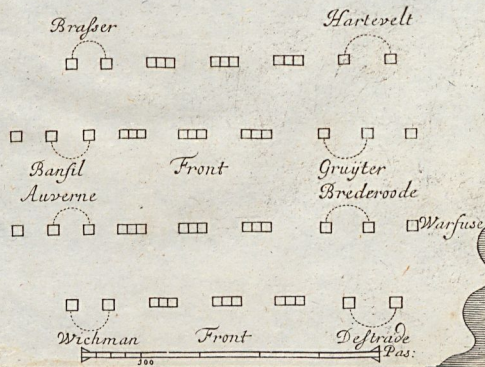 Braſser Hartevelt
Banſil Front Gruÿter
Auverne Brederoode
Warfuse
Wichman Front Deſtrade
300 Pas: